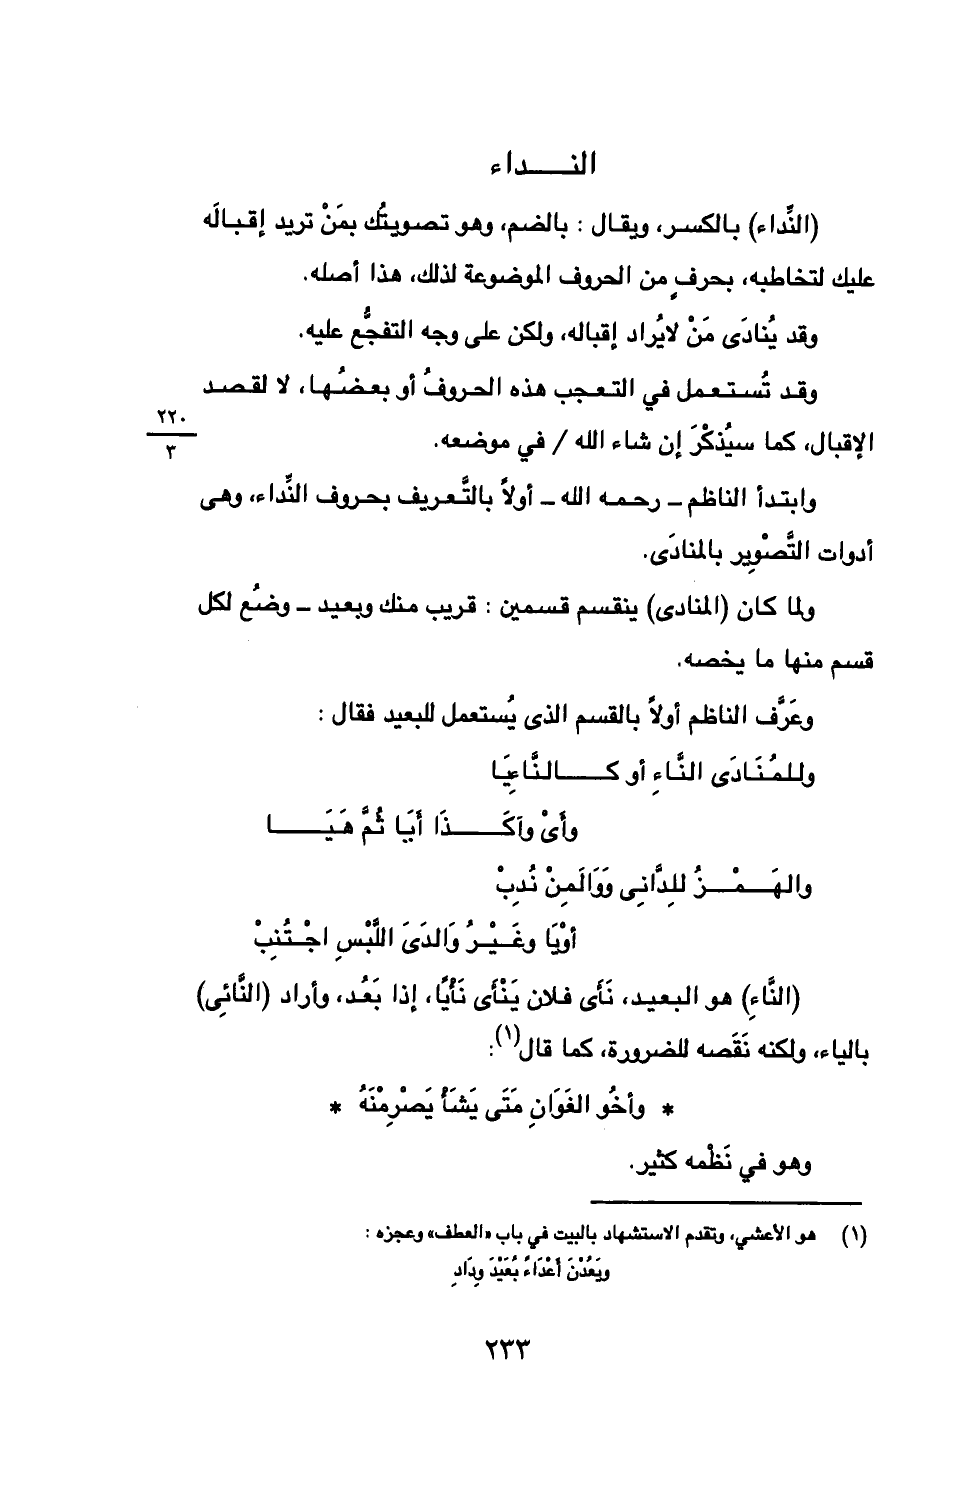 النــــداء
(النِّداء) بالكسر، ويقال : بالضم، وهو تصويتُك بمَنْ تريد إقبالَه
عليك لتخاطبه، بحرفٍ من الحروف الموضوعة لذلك، هذا أصله.
وقد يُنادَى مَنْ لايُراد إقباله، ولكن على وجه التفجُّع عليه.
وقد تُستعمل في التعجب هذه الحروفُ أو بعضُها، لا لقصد
الإقبال، كما سيُذكْرَ إن شاء الله / في موضعه.
٢٢٠
٣
وابتدأ الناظم ـ رحمه الله ـ أولاً بالتَّعريف بحروف النِّداء، وهى
أدوات التَّصْوِير بالمنادَى.
ولما كان (المنادى) ينقسم قسمين : قريب منك وبعيد ـ وضُع لكل
قسم منها ما يخصه.
وعَرَّف الناظم أولاً بالقسم الذى يُستعمل للبعيد فقال :
وللمُنَادَى النَّاءِ أو كــــالنَّاعِيَا
وأَىْ وآكَــــذَا أَيَا ثُمَّ هَيَــــا
والهَــمْــزُ للِدَّانِى وَوَالَمِنْ نُدِبْ
أوْيَا وغَــيْــرُ وَالدَىَ اللَّبْسِ اجْــتُنِبْ
(النَّاءِ) هو البعيد، نَأَى فلان يَنْأَى نَأْيًا، إذا بَعُد، وأراد (النَّائِى)
بالياء، ولكنه نَقَصه للضرورة، كما قال(١):
* وأخُو الغَوَانِ مَتَى يَشَأْ يَصْرِمْنَهُ *
وهو في نَظْمه كثير.
(١) هو الأعشي، وتقدم الاستشهاد بالبيت في باب «العطف» وعجزه :
ويَعُدْنَ أعْدَاءً بُعَيْدَ وِدَادِ
٢٣٣